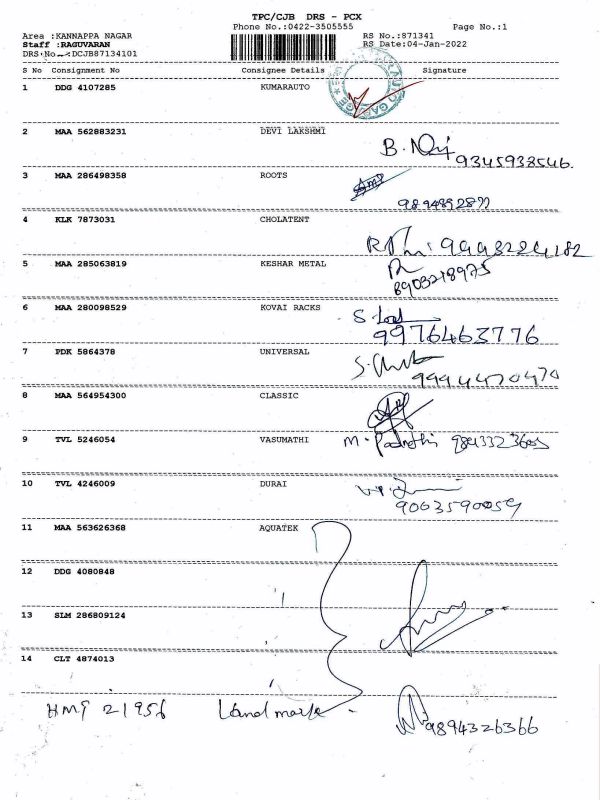 TPC/CJB DRS - PCX
Phone No.:0422-3505555 Page No.:1
Area :KANNAPPA NAGAR RS No.:871341
Staff :RAGUVARAN RS Date:04-Jan-2022
DRS No :DCJB87134101
S No Consignment No Consignee Details Signature
1 DDG 4107285 KUMARAUTO
2 MAA 562883231 DEVI LAKSHMI
9345938546
3 MAA 286498358 ROOTS
4 KLK 7873031 CHOLATENT
5 MAA 285063819 KESHAR METAL
8903218975
6 MAA 280098529 KOVAI RACKS
9976463776
7 PDK 5864378 UNIVERSAL
9994470470
8 MAA 564954300 CLASSIC
9 TVL 5246054 VASUMATHI
10 TVL 4246009 DURAI
9003590059
11 MAA 563626368 AQUATEK
12 DDG 4080848
13 SLM 286809124
14 CLT 4874013
21956 Landmark
9894326366